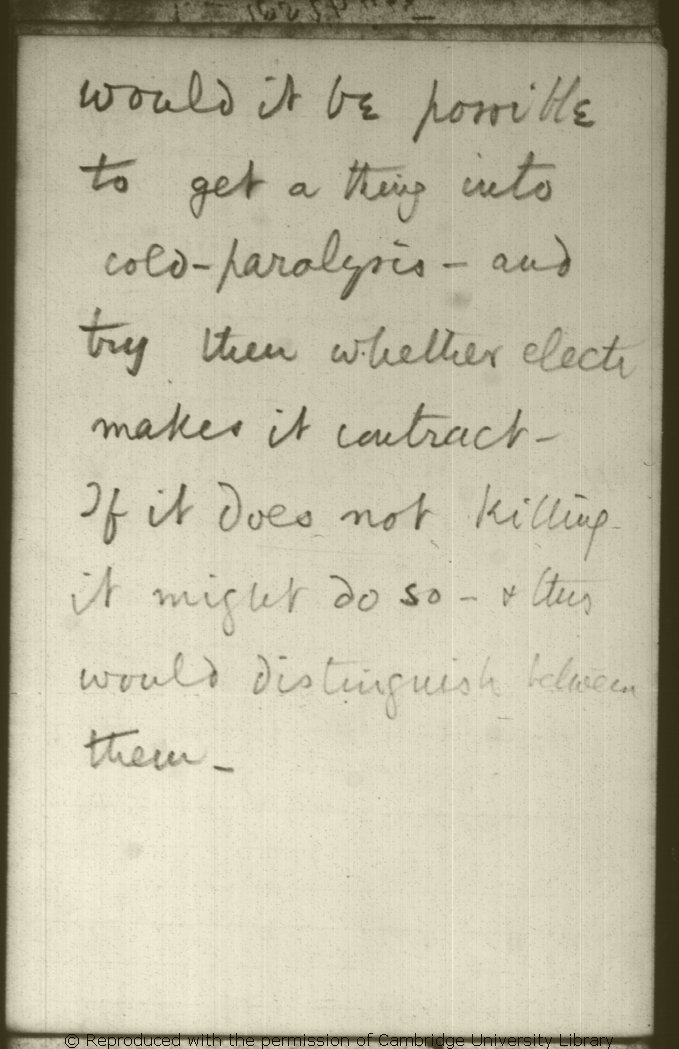 would it be possible
to get a thing into
cold-paralysis – and
try then whether electr
makes it contract –
If it does not killing
it might do so – & this
would distinguish between
them –
© Reproduced with the permission of Cambridge University Library